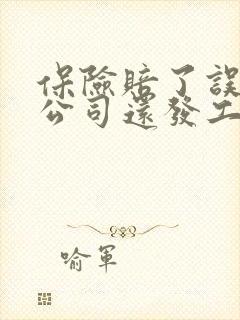 保險賠了誤
公司還發工
喻軍